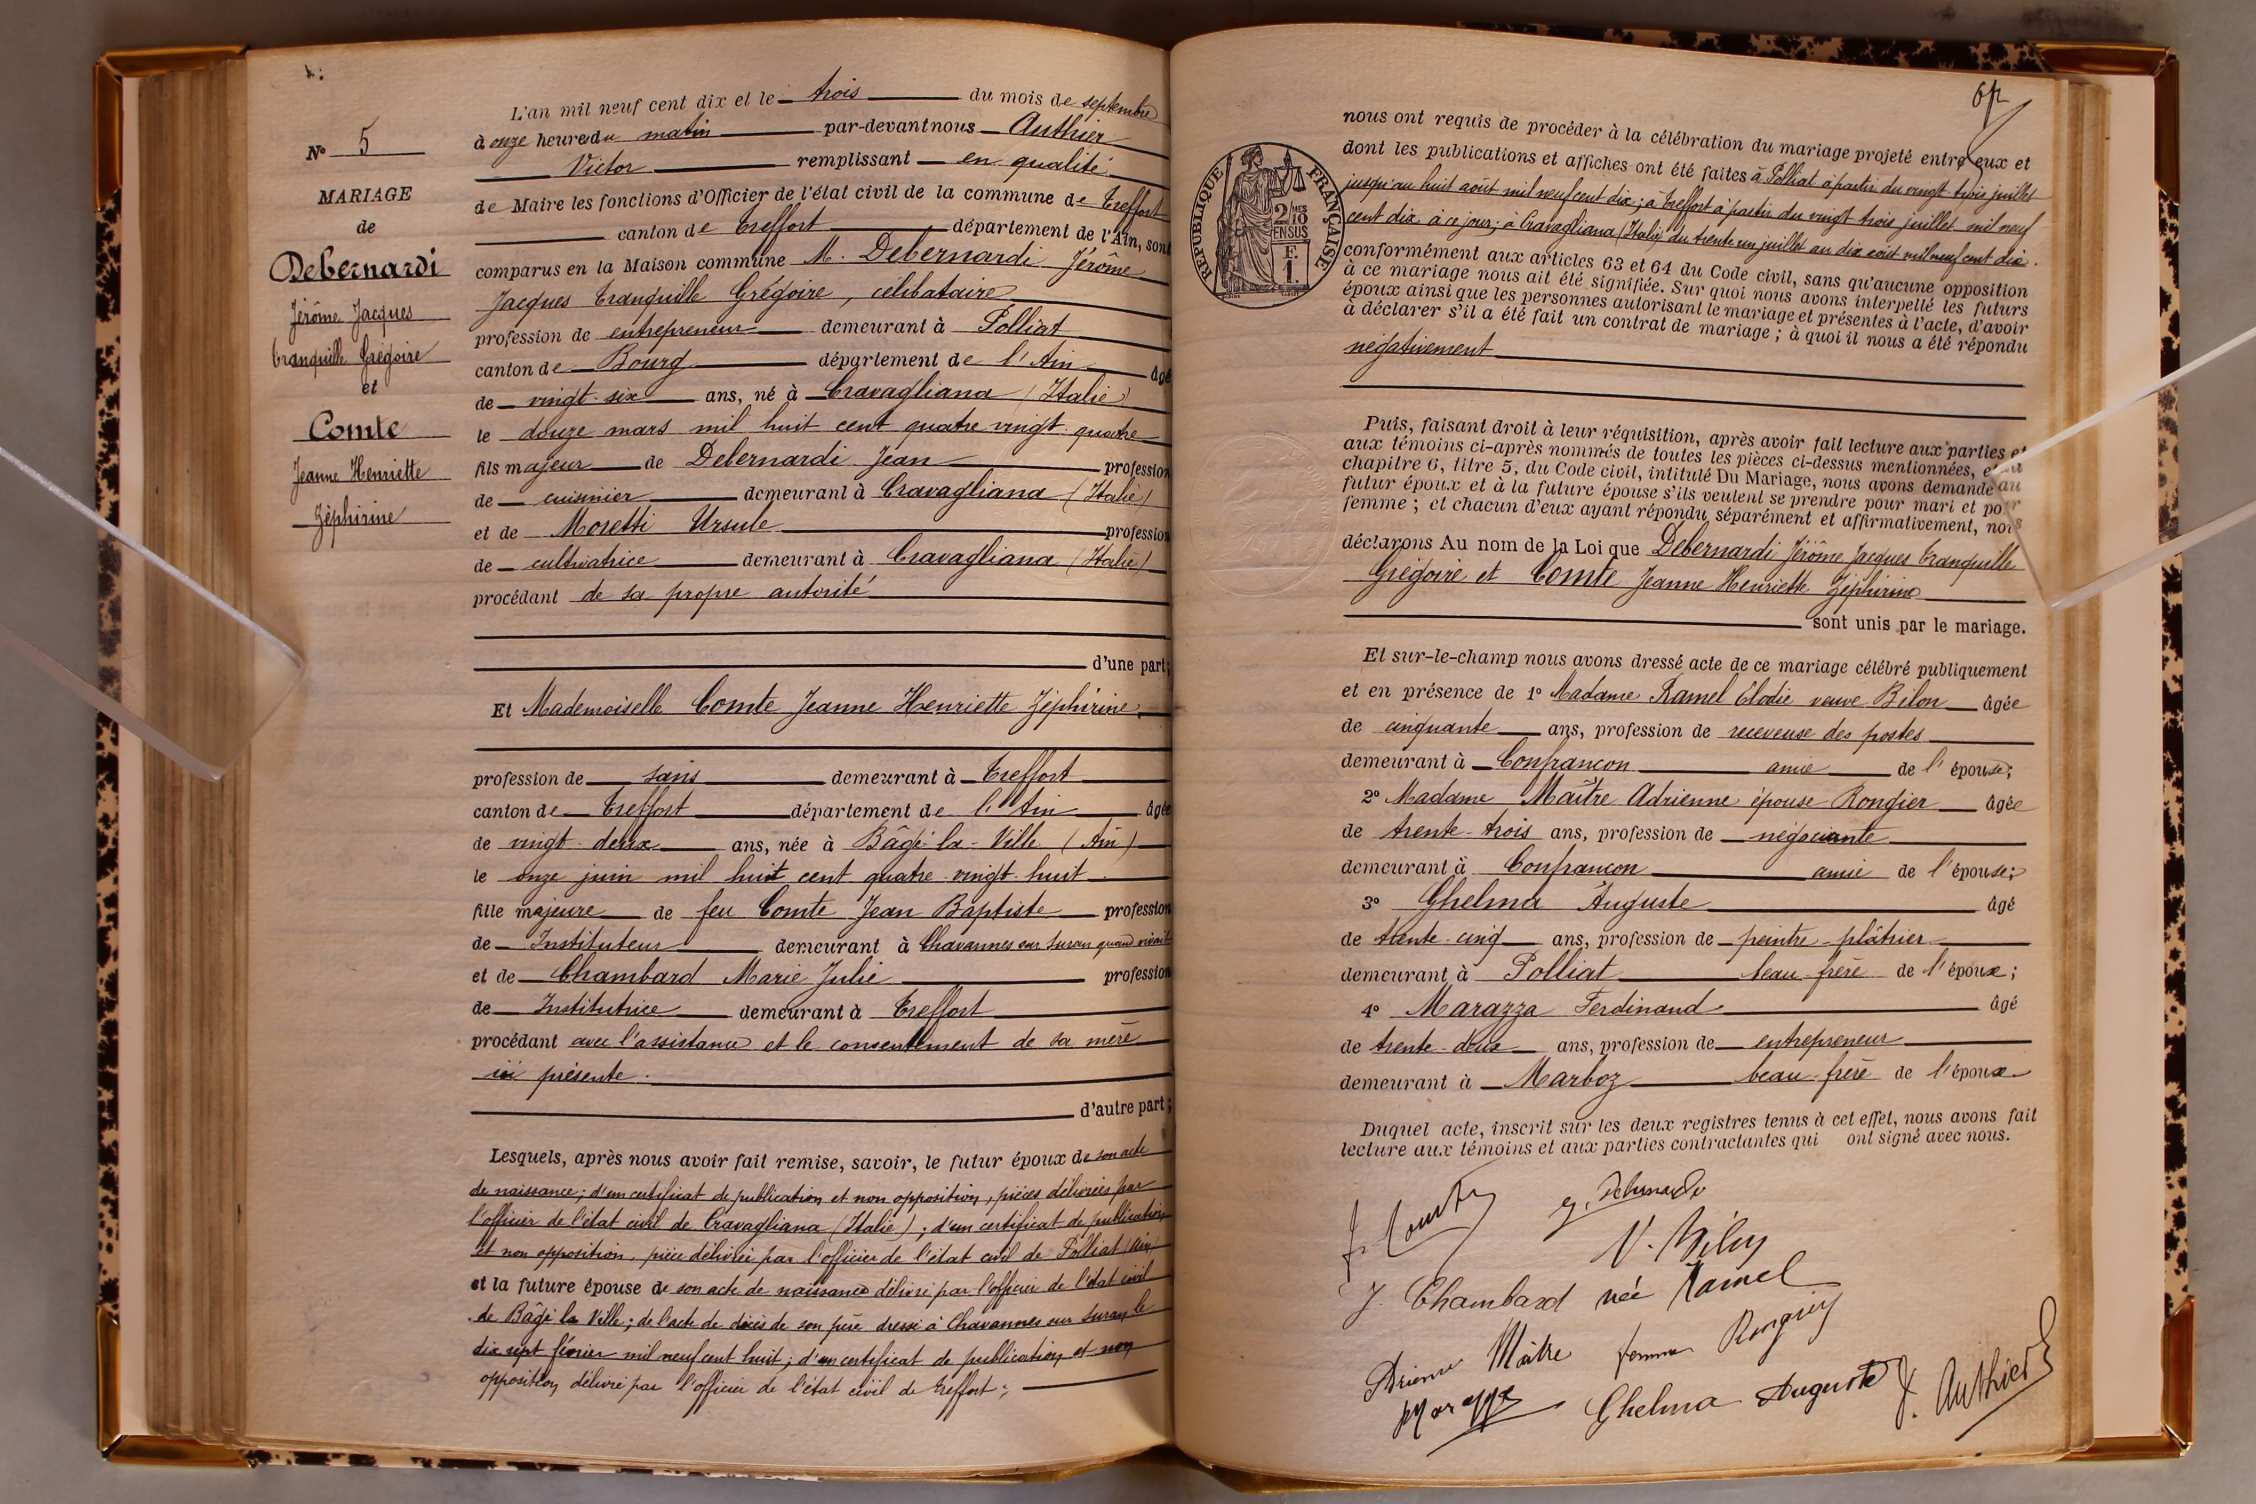 N° 5
MARIAGE
de
Debernardi
Jérôme Jacques
Tranquille Grégoire
et
Comte
Jeanne Henriette
Zéphirine
L'an mil neuf cent dix et le trois du mois de septembre
à onze heure du matin par-devant nous Authier
Victor remplissant en qualité
de Maire les fonctions d'Officier de l'état civil de la commune de Treffort
canton de Treffort département de l'Ain, sont
comparus en la Maison commune M. Debernardi Jérôme
Jacques Tranquille Grégoire, célibataire
profession de entrepreneur demeurant à Polliat
canton de Bourg département de l'Ain âgé
de vingt-six ans, né à Cravagliana (Italie)
le douze mars mil huit cent quatre vingt-quatre
fils majeur de Debernardi Jean profession
de cuisinier demeurant à Cravagliana (Italie)
et de Mosetti Ursule profession
de cultivatrice demeurant à Cravagliana (Italie)
procédant de sa propre autorité
d'une part;
Et Mademoiselle Comte Jeanne Henriette Zéphirine,
profession de sans demeurant à Treffort
canton de Treffort département de l'Ain âgée
de vingt-deux ans, née à Bâgé-la-Ville (Ain)
le onze juin mil huit cent quatre-vingt-huit
fille majeure de feu Comte Jean Baptiste profession
de Instituteur demeurant à Chavannes sur Suran quand vivait
et de Chambard Marie Julie profession
de Institutrice demeurant à Treffort
procédant avec l'assistance et le consentement de sa mère
ici présente.
d'autre part;
Lesquels, après nous avoir fait remise, savoir, le futur époux de son acte
de naissance; d'un certificat de publication et non opposition, pièces délivrées par
l'officier de l'état civil de Cravagliana (Italie); d'un certificat de publication
et non opposition, pièce délivrée par l'officier de l'état civil de Polliat (Ain)
et la future épouse de son acte de naissance délivré par l'officier de l'état civil
de Bâgé la Ville; de l'acte de décès de son père dressé à Chavannes sur Suran le
dix sept février mil neuf cent huit; d'un certificat de publication et non
opposition délivré par l'officier de l'état civil de Treffort;
RÉPUBLIQUE FRANÇAISE
2/10 MES
EN SUS
F.
1.
nous ont requis de procéder à la célébration du mariage projeté entre eux et
dont les publications et affiches ont été faites à Polliat à partir du vingt trois juillet
jusqu'au huit août mil neuf cent dix; à Treffort à partir du vingt trois juillet mil neuf
cent dix à ce jour; à Cravagliana (Italie) du trente un juillet au dix août mil neuf cent dix.
conformément aux articles 63 et 64 du Code civil, sans qu'aucune opposition
à ce mariage nous ait été signifiée. Sur quoi nous avons interpellé les futurs
époux ainsi que les personnes autorisant le mariage et présentes à l'acte, d'avoir
à déclarer s'il a été fait un contrat de mariage; à quoi il nous a été répondu
négativement
Puis, faisant droit à leur réquisition, après avoir fait lecture aux parties et
aux témoins ci-après nommés de toutes les pièces ci-dessus mentionnées, et du
chapitre 6, titre 5, du Code civil, intitulé Du Mariage, nous avons demandé au
futur époux et à la future épouse s'ils veulent se prendre pour mari et pour
femme; et chacun d'eux ayant répondu séparément et affirmativement, nous
déclarons Au nom de la Loi que Debernardi Jérôme Jacques Tranquille
Grégoire et Comte Jeanne Henriette Zéphirine
sont unis par le mariage.
Et sur-le-champ nous avons dressé acte de ce mariage célébré publiquement
et en présence de 1° Madame Ramel Elodie veuve Bilon âgée
de cinquante ans, profession de receveuse des postes
demeurant à Confrançon amie de l'épouse;
2° Madame Maître Adrienne épouse Rongier âgée
de trente-trois ans, profession de négociante
demeurant à Confrançon amie de l'épouse;
3° Ghelma Auguste âgé
de trente-cinq ans, profession de peintre-plâtrier
demeurant à Polliat beau-frère de l'époux;
4° Marazza Ferdinand âgé
de trente-deux ans, profession de entrepreneur
demeurant à Marboz beau-frère de l'époux
Duquel acte, inscrit sur les deux registres tenus à cet effet, nous avons fait
lecture aux témoins et aux parties contractantes qui ont signé avec nous.
J. Comte
V. Bilon
J. Chambard née Ramel
Maître femme Rongier
Marazza Ghelma Auguste V. Authier